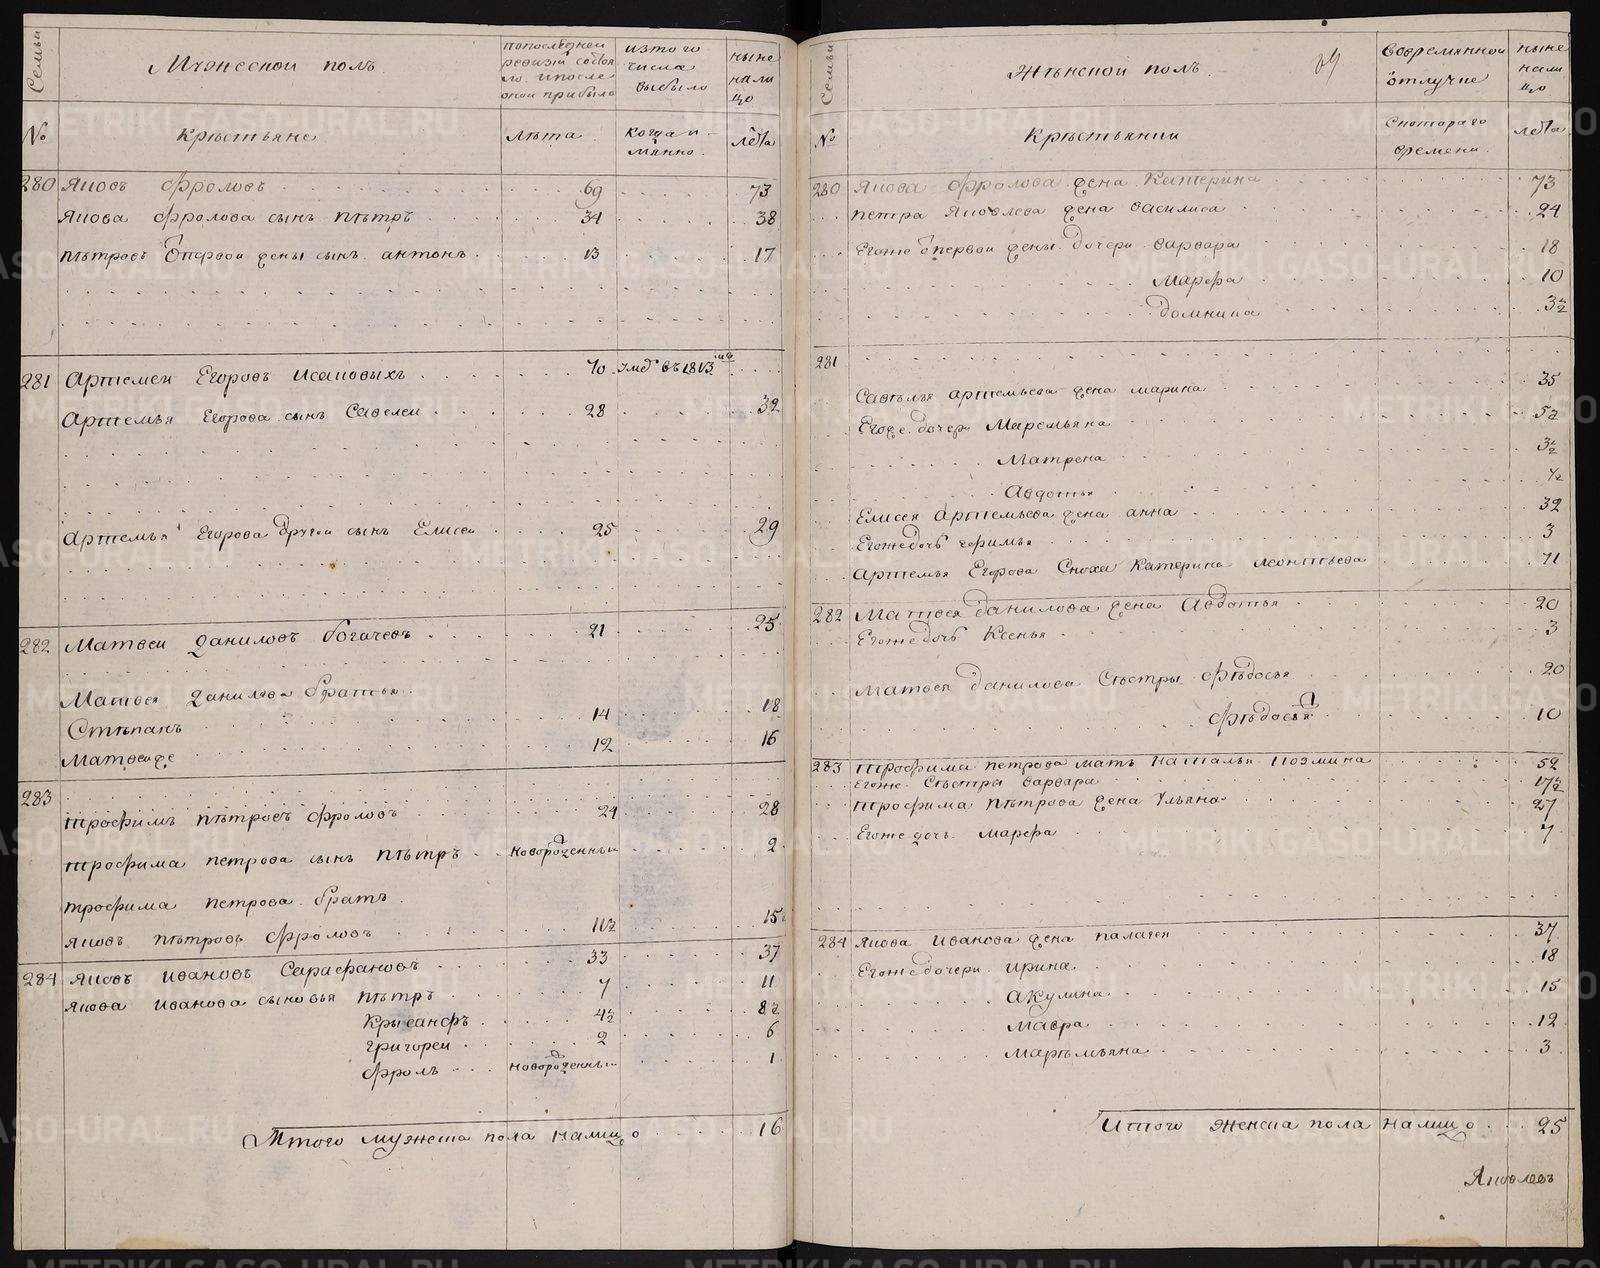 Семьи
Мужескои полъ
попоследнеи
ревизiи состоя
ло ипосле
онои прибыло
изтого
числа
выбыло
ныне
нали
цо
№
Крѣстьяне
лѣта
когда и
лѣта
280 Яковъ Фроловъ 69 73
Якова Фролова сынъ Пѣтръ 34 38
Пѣтровъ отпервои жены сынъ антонъ 13 17
281 Артемеи Егоровъ Исаковыхъ 70 умеръ въ 1813
Артемья Егорова сынъ Савелеи 28 32
Артемья Егорова другои сынъ Елисеи 25 29
282 Матвеи Даниловъ Богачевъ 21 25
Матвея Данилова братья
Стѣпанъ 14 18
Матвеиже 12 16
283
Трофимъ Пѣтровъ Фроловъ 24 28
Трофима Петрова сынъ Пѣтръ новорожденныи 2
Трофима Петрова братъ
Яковъ Пѣтровъ Фроловъ 11½ 15
284 Яковъ Ивановъ Сарафановъ 33 37
Якова Иванова сыновья Пѣтръ 7 11
Крысанфъ 4½ 8½
Григореи 2 6
Фролъ новорожденныи 1
Итого мужеска пола налицо 16
Семьи
Жѣнскои полъ
69
Вовремяннои
отлучке
ныне
нали
цо
№
Крѣстьянки
Скотораго
времени
лѣта
280 Якова Фролова жена Катерина 73
Петра Яковлева жена Василиса 24
Егоже отпервои жены дочери Варвара 18
Марфа 10
Домника 3½
281
Савѣлья Артемьева жена Марина 35
Егоже дочери Маремьяна 5½
Матрена 3½
Авдотья ½
Елисея Артемьева жена анна 32
Егоже дочь Афимья 3
Артемья Егорова Сноха Катерина Леонтьева 71
282 Матвея Данилова жена Авдотья 20
Егоже дочь Ксенья 3
Матвея Данилова Сѣстры Фѣдосья 20
Фѣдосья 10
283 Трофима Петрова мать Наталья Козмина 52
Егоже Сѣстры Варвара 17½
Трофима Пѣтрова жена Ульяна 27
Егоже дочь Марфа 7
284 Якова Иванова жена Палагея 37
Егоже дочери Ирина 18
Акулина 15
Мавра 12
Марѣмьяна 3
Итого женска пола налицо 25
Яковлевъ
METRIKI.GASO-URAL.RU